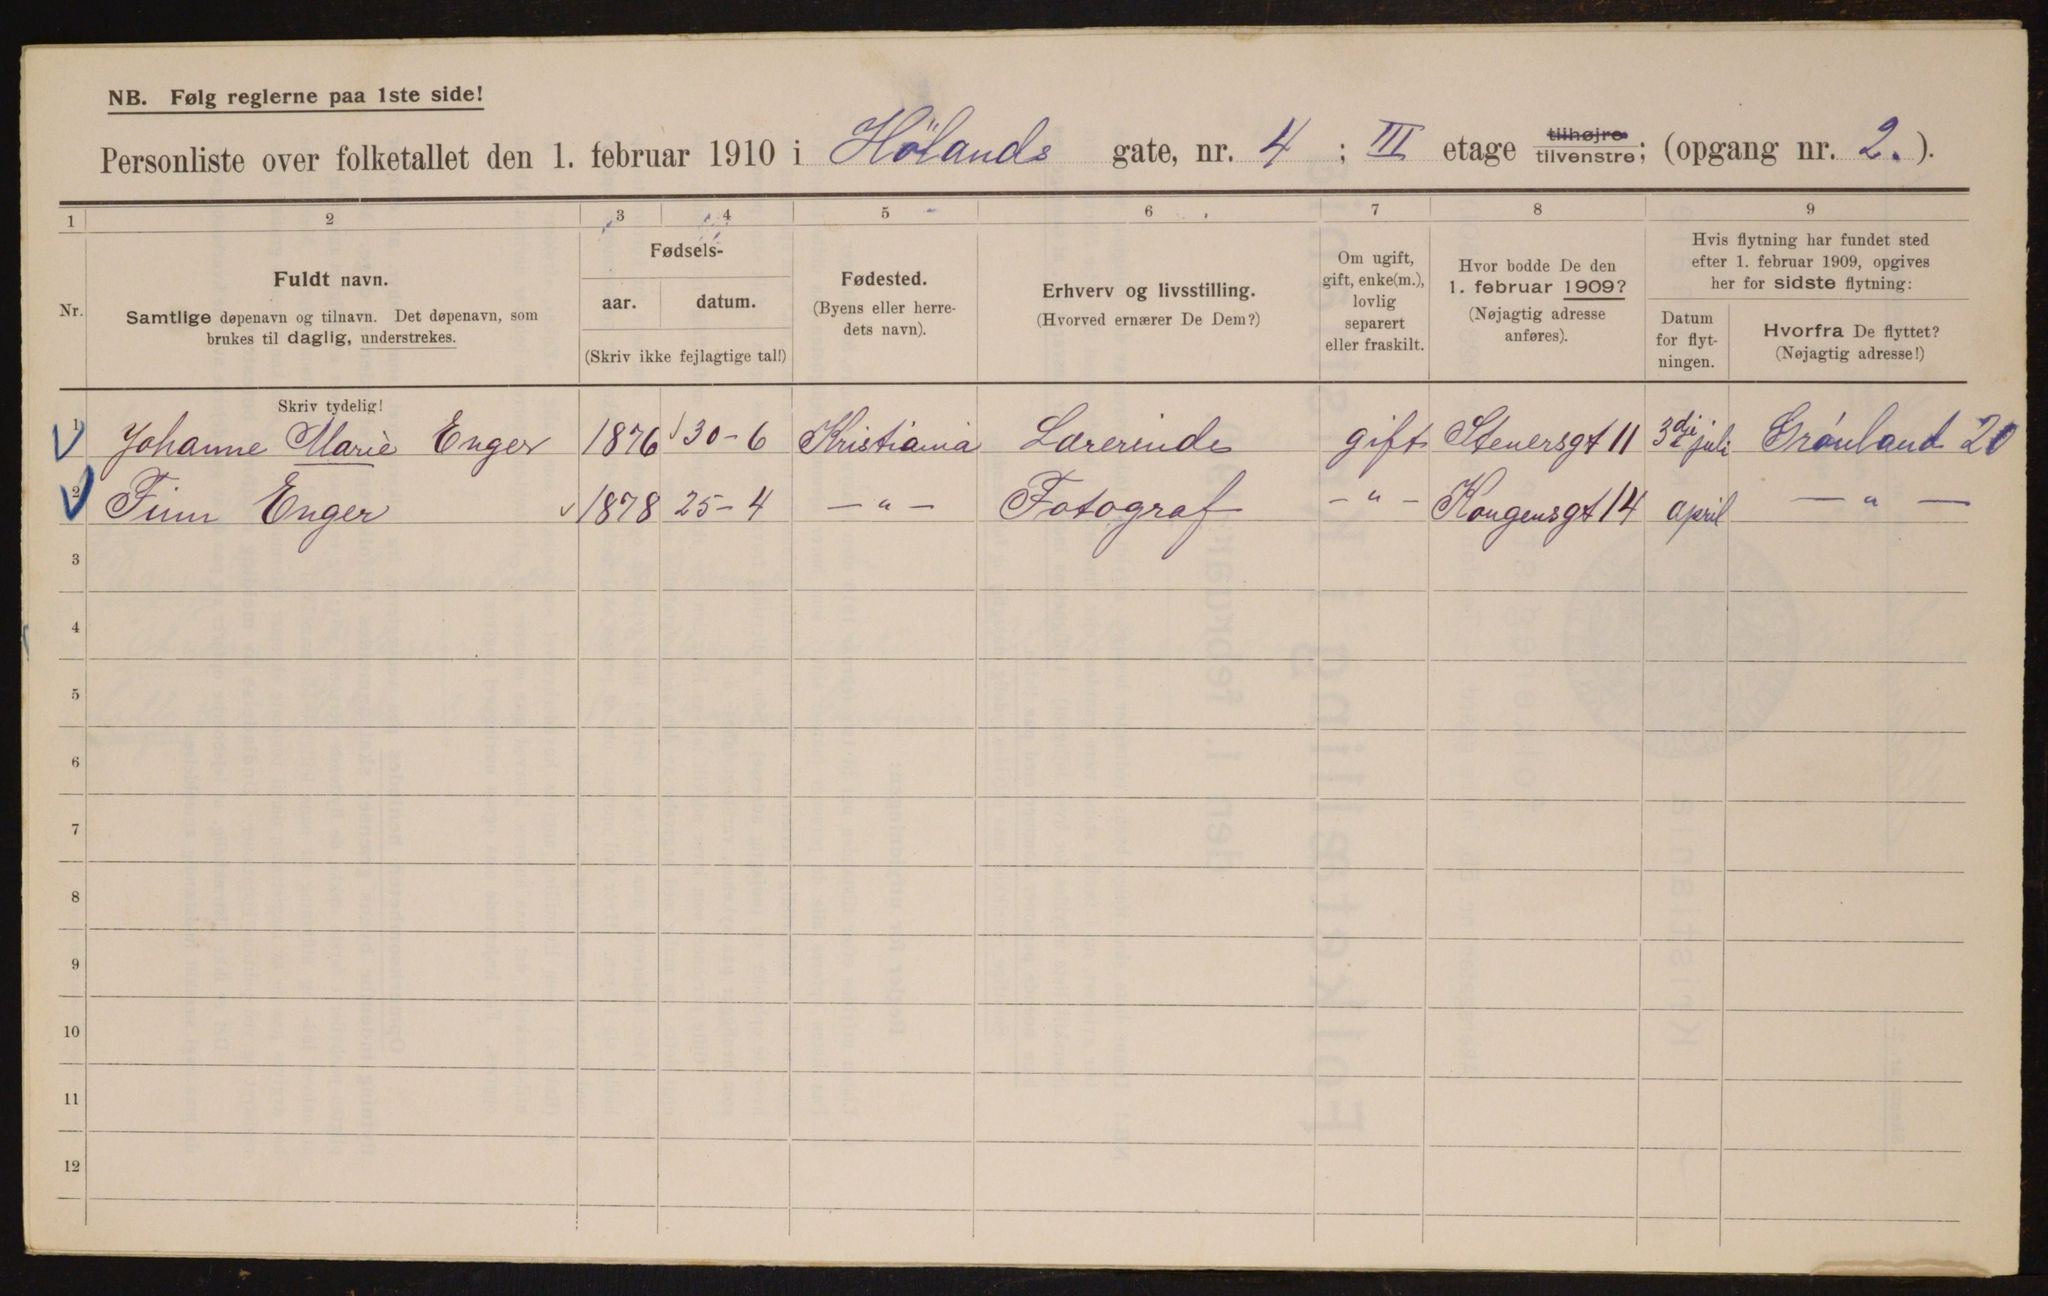 NB. Følg reglerne paa 1ste side!
Personliste over folketallet den 1. februar 1910 i Hölands gate, nr. 4 ; III etage tilhøjre tilvenstre; (opgang nr. 2. ).
1 2 3 4 5 6 7 8 9
Nr.
Fuldt navn.
Samtlige døpenavn og tilnavn. Det døpenavn, som
brukes til daglig, understrekes.
Fødsels-
aar. datum.
(Skriv ikke fejlagtige tal!)
Fødested.
(Byens eller herre-
dets navn).
Erhverv og livsstilling.
(Hvorved ernærer De Dem?)
Om ugift,
gift, enke(m.),
lovlig
separert
eller fraskilt.
Hvor bodde De den
1. februar 1909?
(Nøjagtig adresse
anføres).
Hvis flytning har fundet sted
efter 1. februar 1909, opgives
her for sidste flytning:
Datum
for flyt-
ningen.
Hvorfra De flyttet?
(Nøjagtig adresse!)
Skriv tydelig!
1 Johanne Marie Enger 1876 30-6 Kristiania Lærerinde gift Stenersgt 11 3die juli Grønland 20
2 Finn Enger 1878 25-4 — " — Fotograf — " — Kongensgt 14 april — " —
3
4
5
6
7
8
9
10
11
12